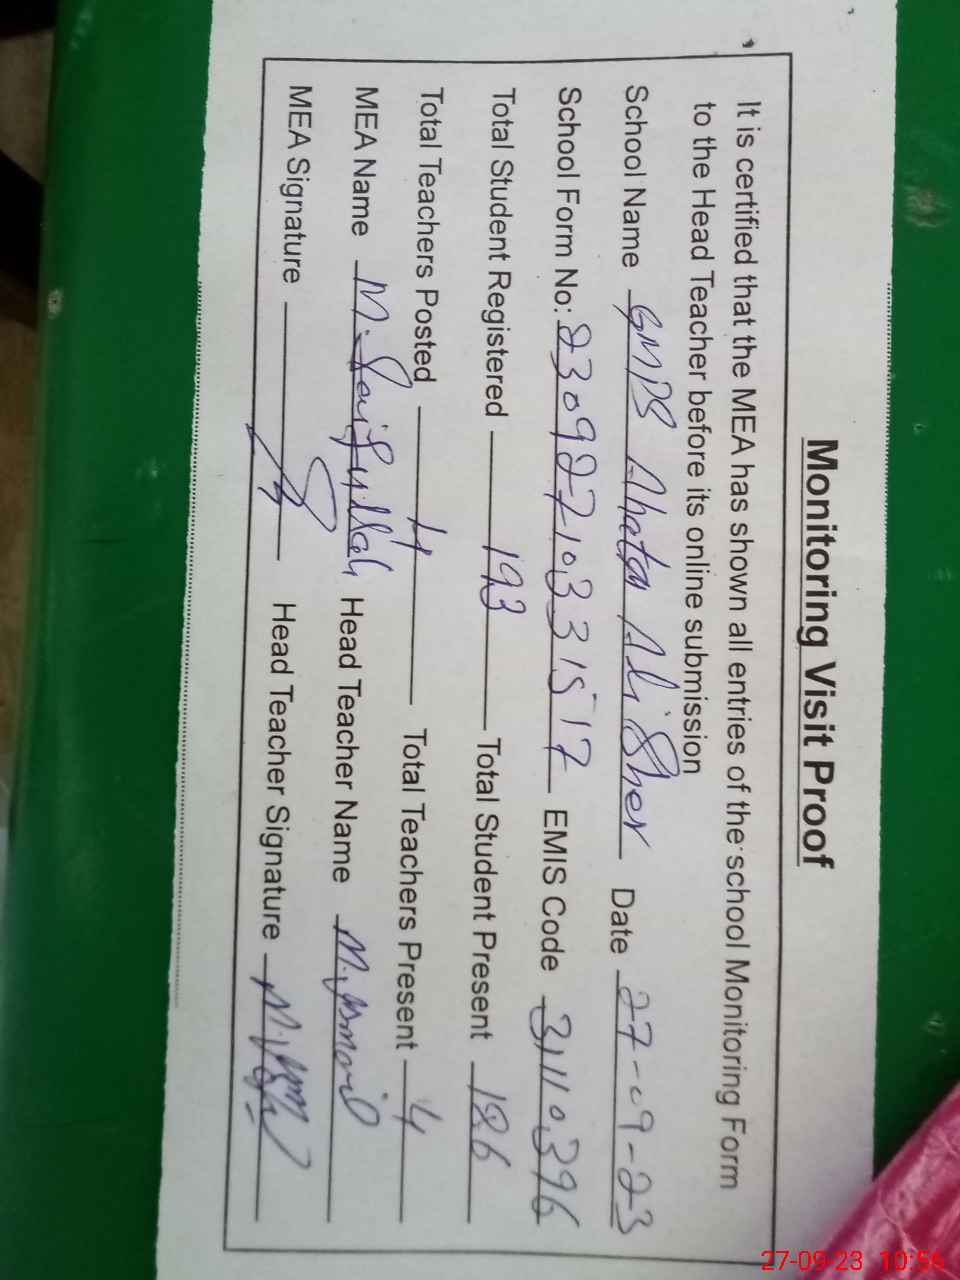 Monitoring Visit Proof
It is certified that the MEA has shown all entries of the school Monitoring Form
to the Head Teacher before its online submission
School Name GMPS Ahata Ali Sher Date 27-09-23
School Form No: 2309271033 1517 EMIS Code 31110396
Total Student Registered 193 Total Student Present 186
Total Teachers Posted 4 Total Teachers Present 4
MEA Name M. Saifullah Head Teacher Name M.
MEA Signature Head Teacher Signature
27-09-23 10:56